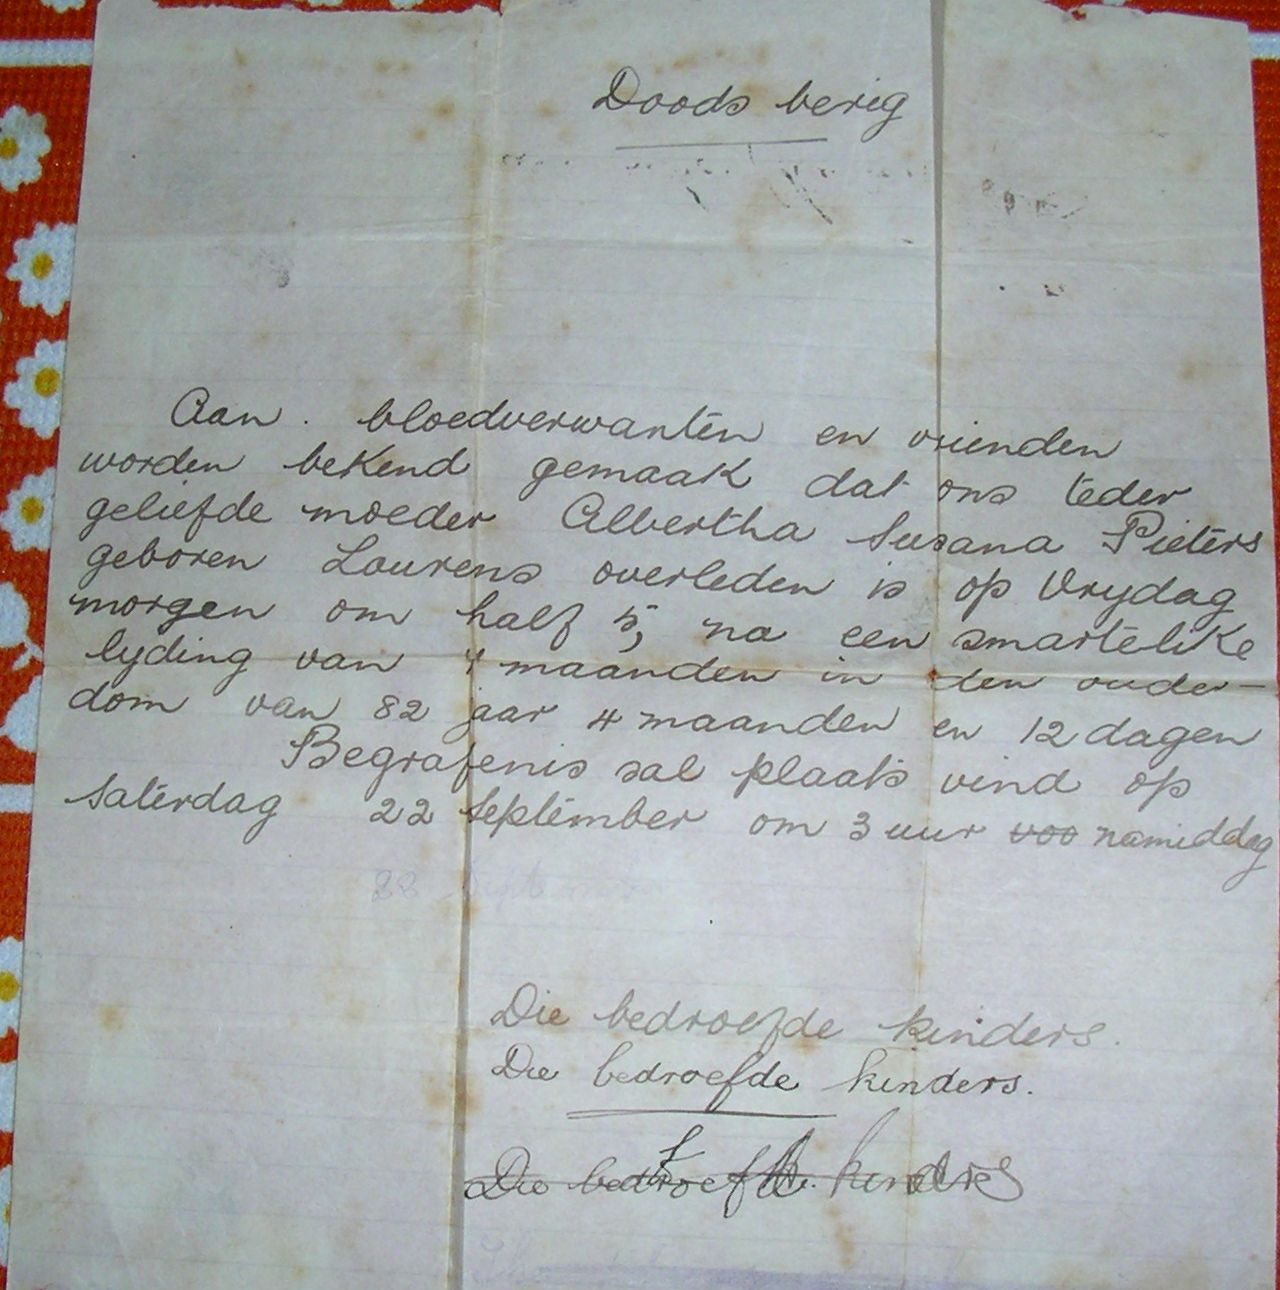 Doods berig
Aan. bloedverwanten en vrienden
worden bekend gemaak dat ons teder
geliefde moeder Albertha Susana Pieters
geboren Lourens overleden is op Vrydag
morgen om half 5, na een smartelike
lyding van 4 maanden in den ouder-
dom van 82 jaar 4 maanden en 12 dagen
Begrafenis sal plaats vind op
Saterdag 22 September om 3 uur voo namiddag
22 Sept
Die bedroefde kinders.
Die bedroefde kinders.
Die bedroefde kinders